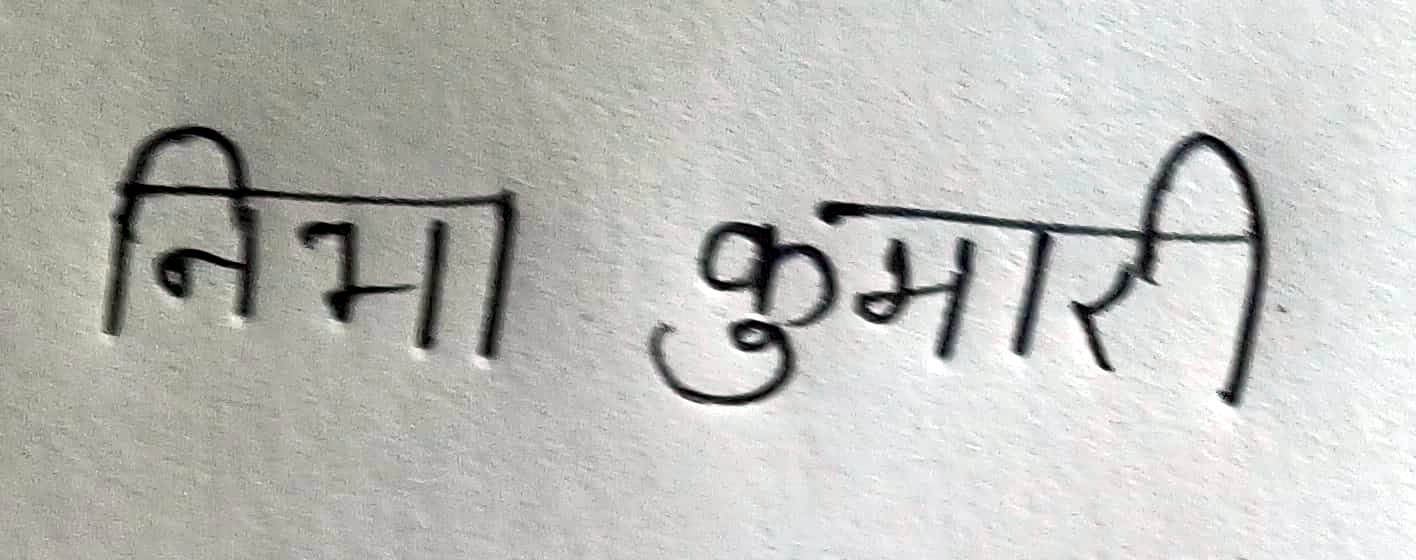 निभा कुमारी